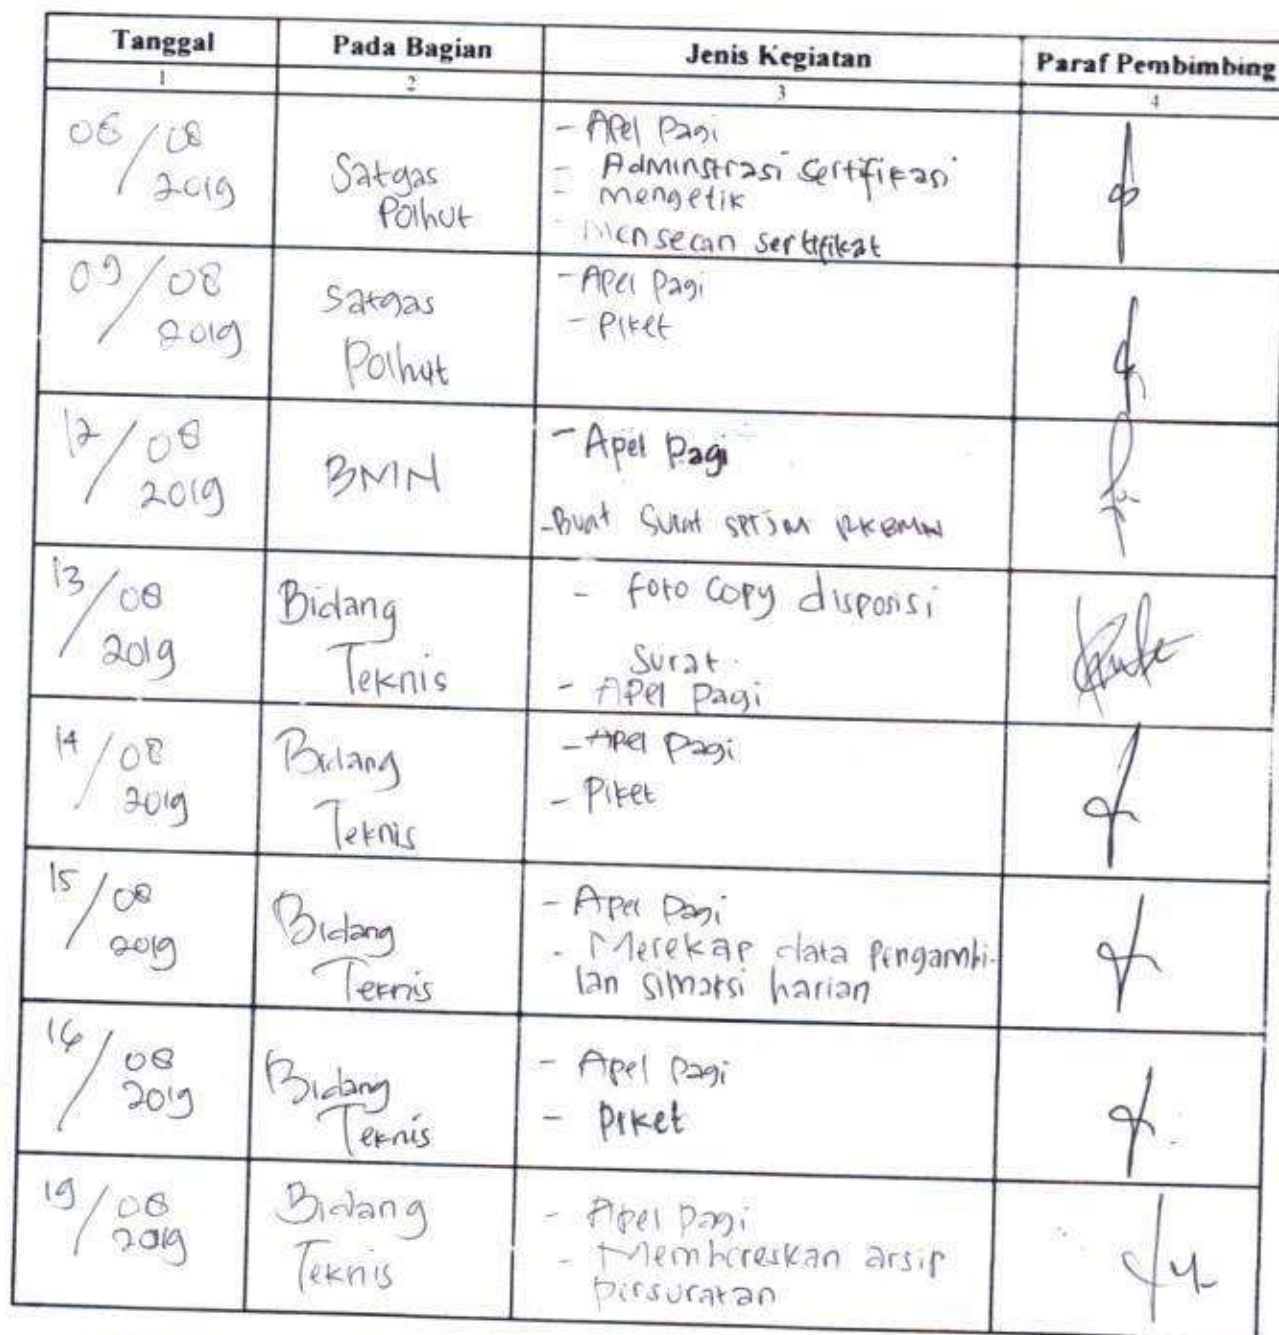 Tanggal Pada Bagian Jenis Kegiatan Paraf Pembimbing
1 2 3 4
08/08 2019
Satgas
Polhut
- Apel Pagi
- Adminstrasi Sertifikasi
- mengetik
- Mensecan sertifikat
09/08 2019
Satgas
Polhut
- Apel Pagi
- Piket
12/08 2019
BMN
- Apel Pagi
- Buat Surat SPTJM RKBMN
13/08 2019
Bidang
Teknis
- Foto Copy disposisi
Surat.
- Apel Pagi
14/08 2019
Bidang
Teknis
- Apel Pagi
- Piket
15/08 2019
Bidang
Teknis
- Apel Pagi
- Merekap data Pengambi-
lan simaksi harian
16/08 2019
Bidang
Teknis
- Apel Pagi
- Piket
19/08 2019
Bidang
Teknis
- Apel Pagi
- Membereskan arsip
persuratan